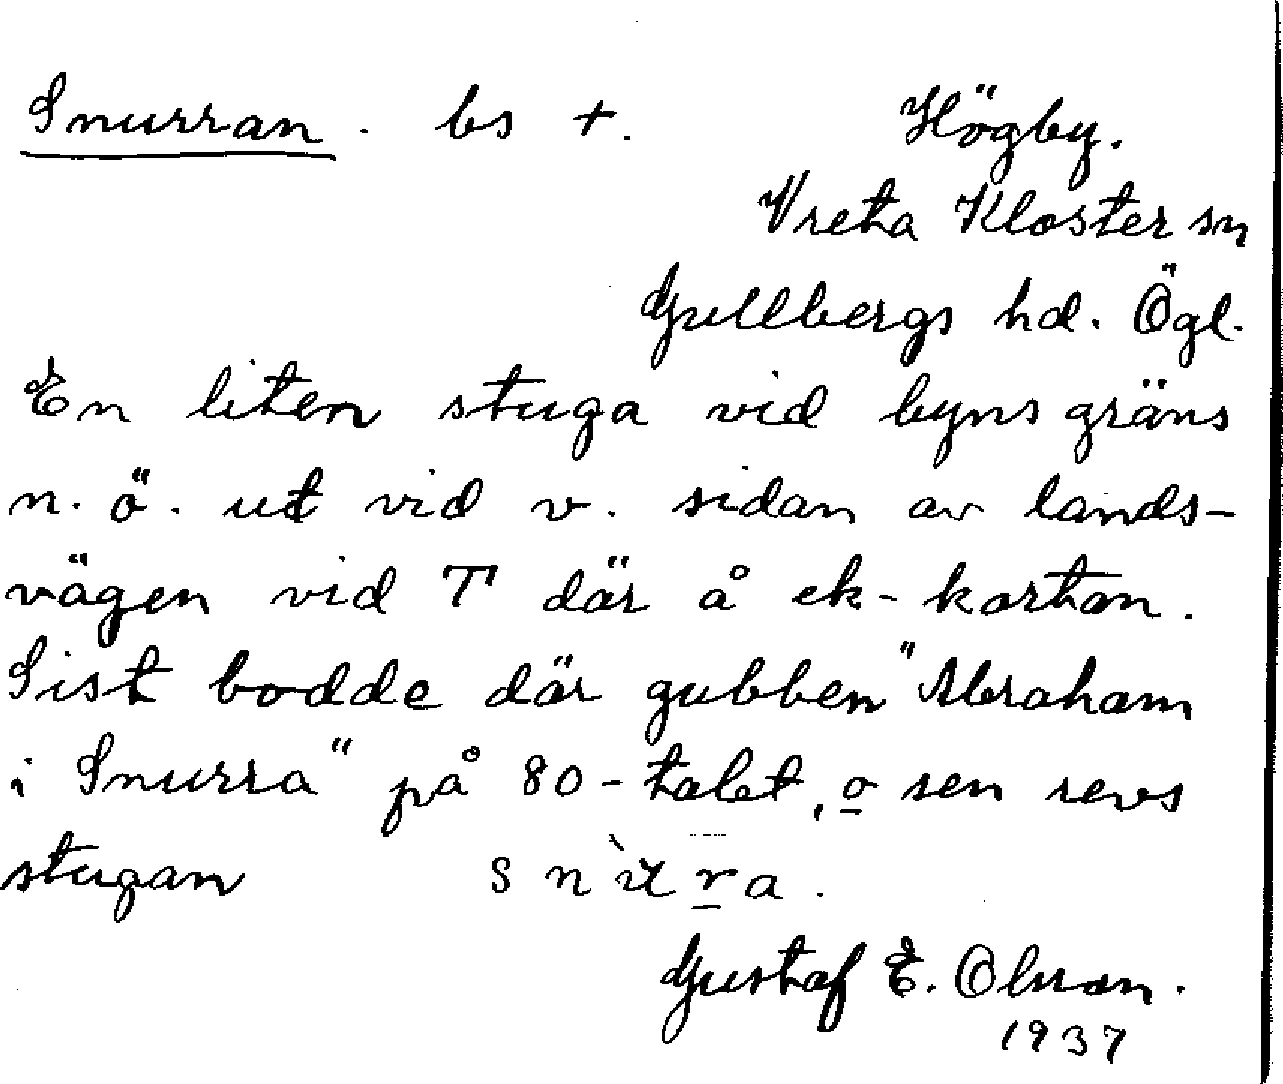 Snurran. bs +. Högby.
Vreta Kloster sn
Gullbergs hd. Ögl.
En liten stuga vid byns gräns
n. ö. ut vid v. sidan av lands-
vägen vid T där å ek-kartan.
Sist bodde där gubben "Abraham
i Snurra" på 80-talet, o sen revs
stugan
Gustaf E. Olsson.
1937